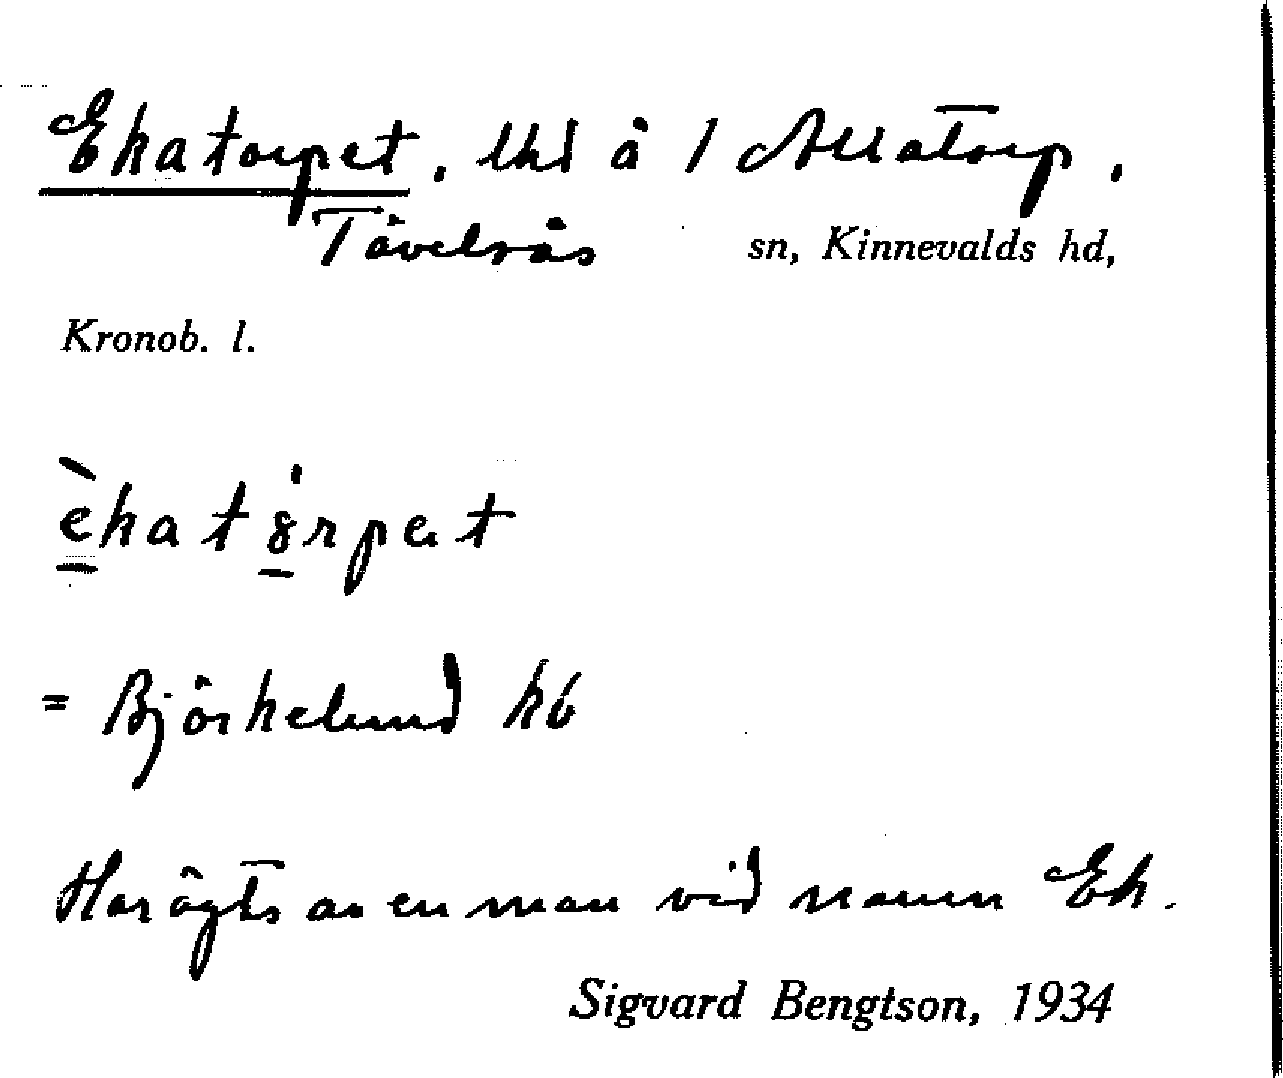 Ekatorpet, lhd å 1 Allatorp,
Tävelsås sn, Kinnevalds hd,
Kronob. l.
èkatȯrpet
= Björkelund kb
Har ägts av en man vid namn Ek.
Sigvard Bengtson, 1934